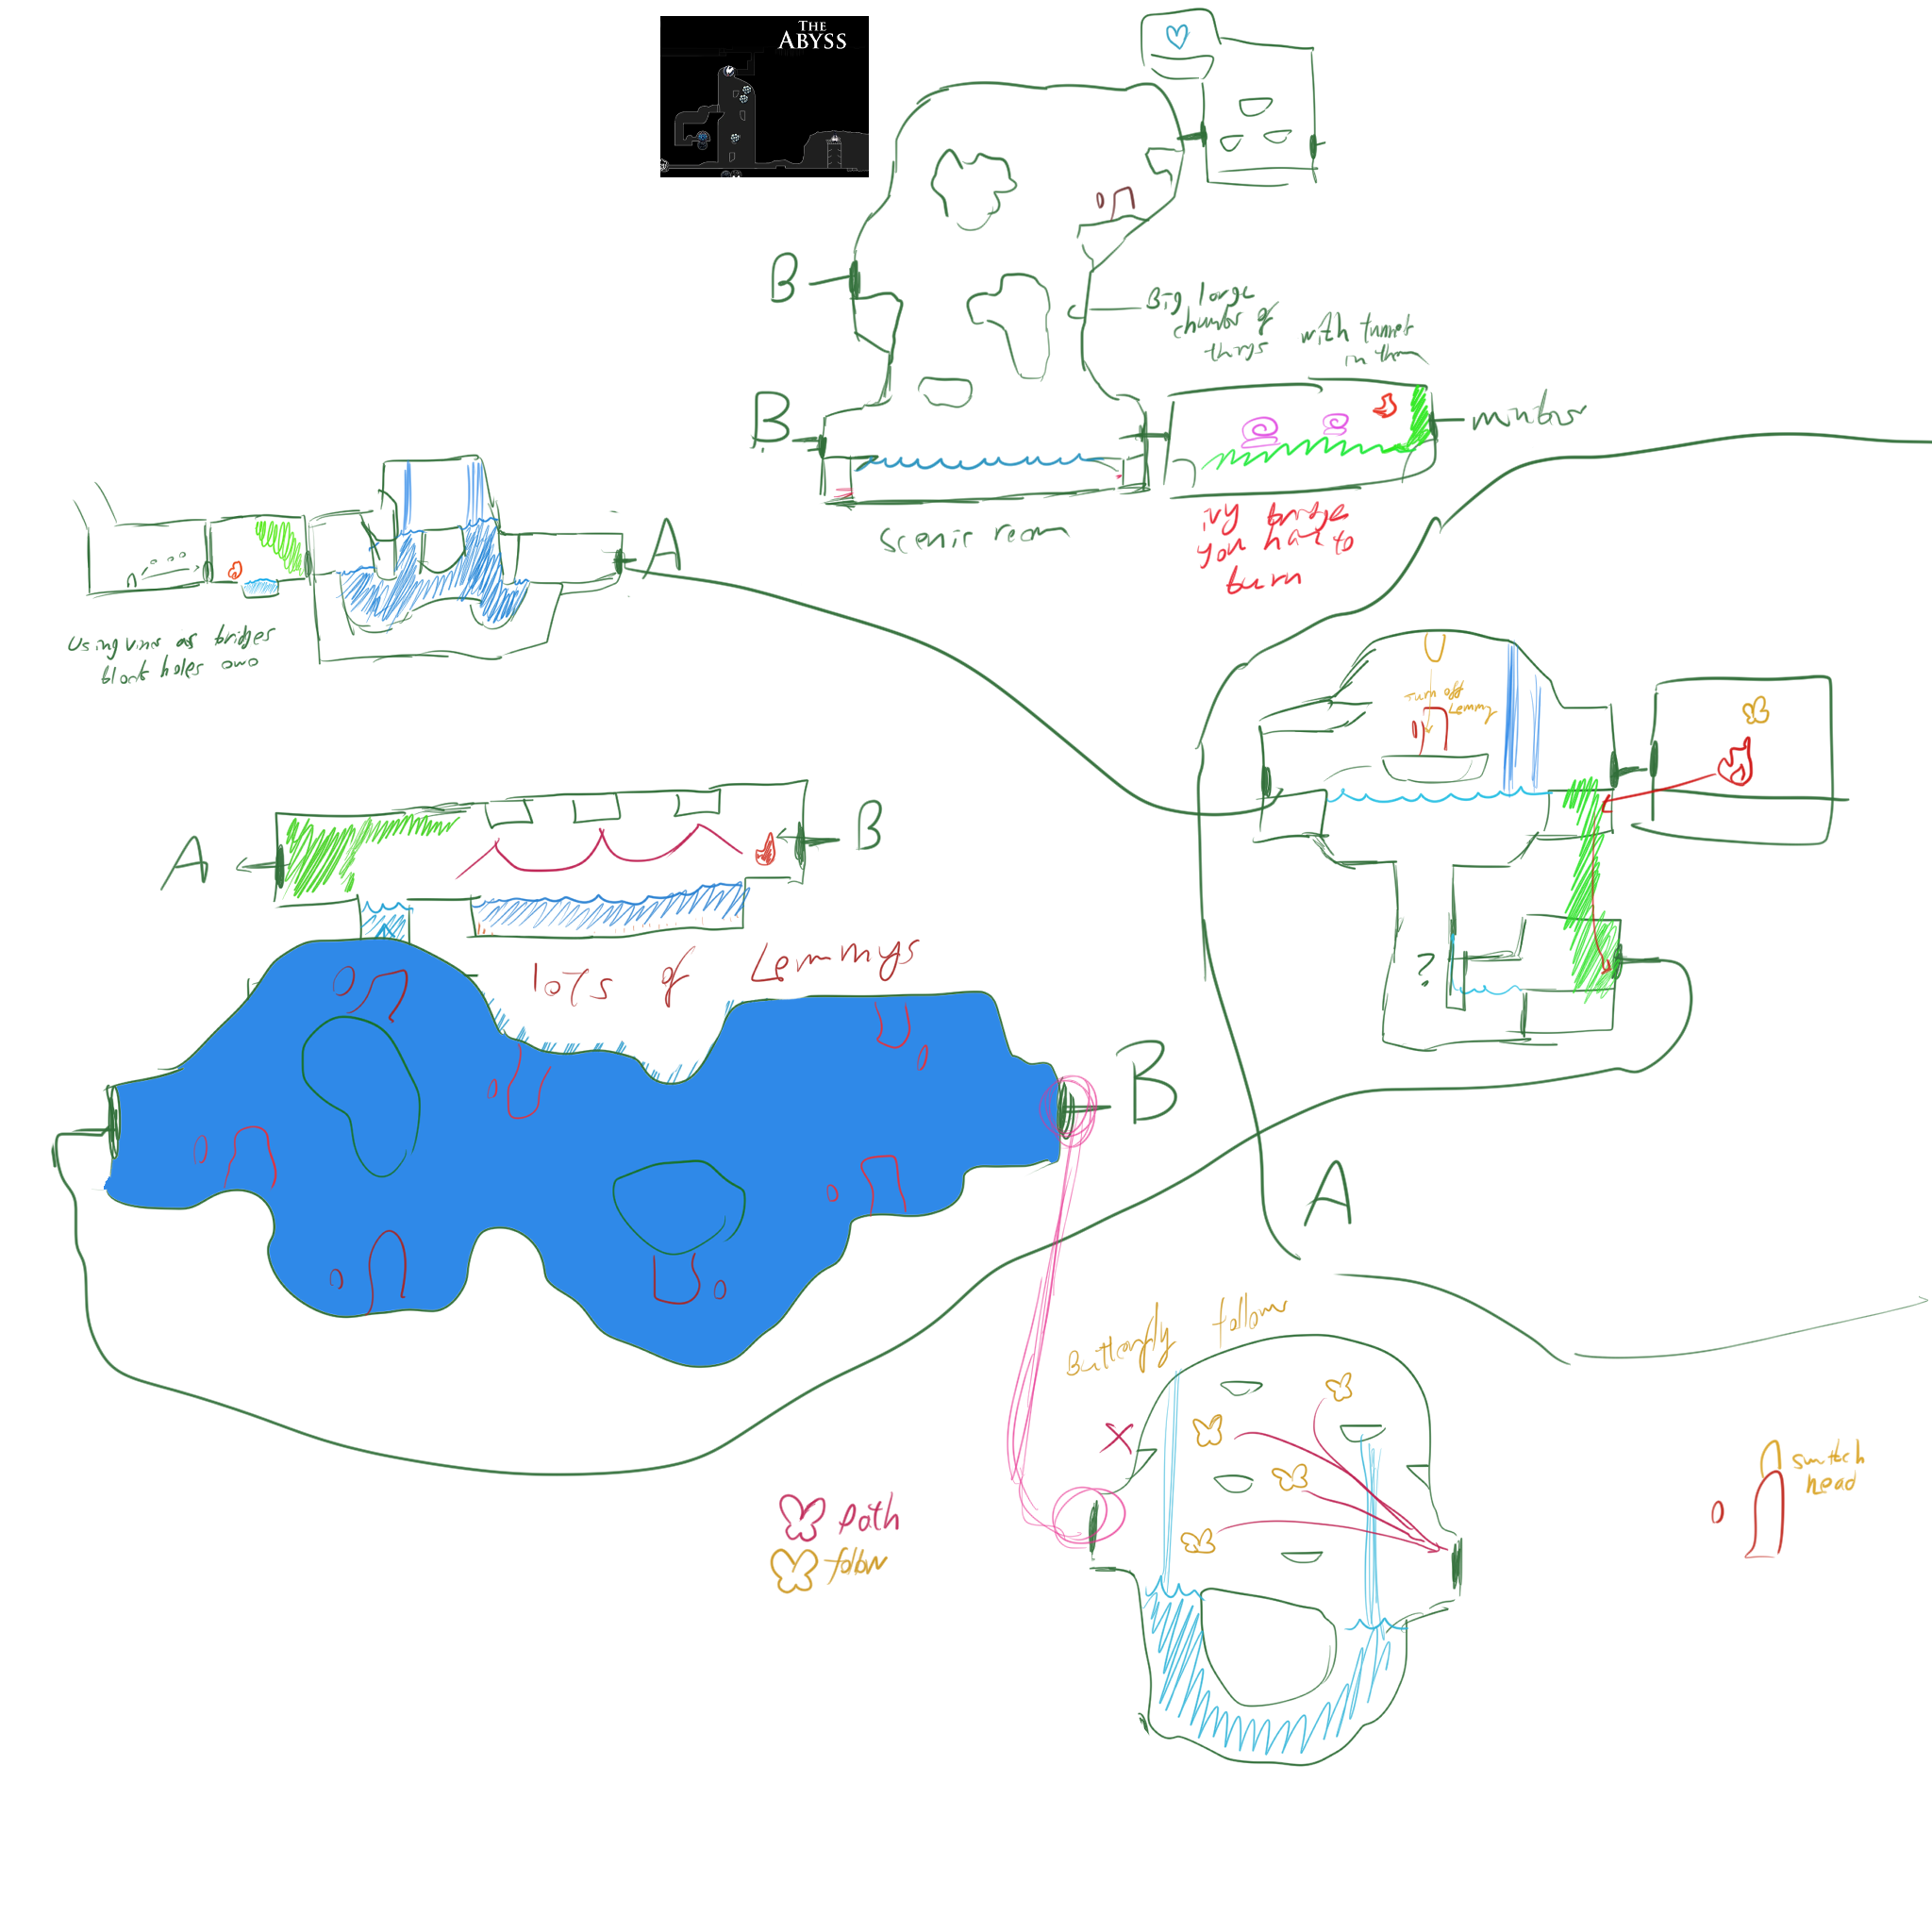 THE
ABYSS
B
Big large
of
things
with tunnels
in them
B
scenic room
ivy bridge
you have to
burn
A
Using vines as bridges
block holes owo
Turn off
Lemmy
A
B
lots of Lemmys
B
A
Butterfly follow
path
follow
switch
head
?